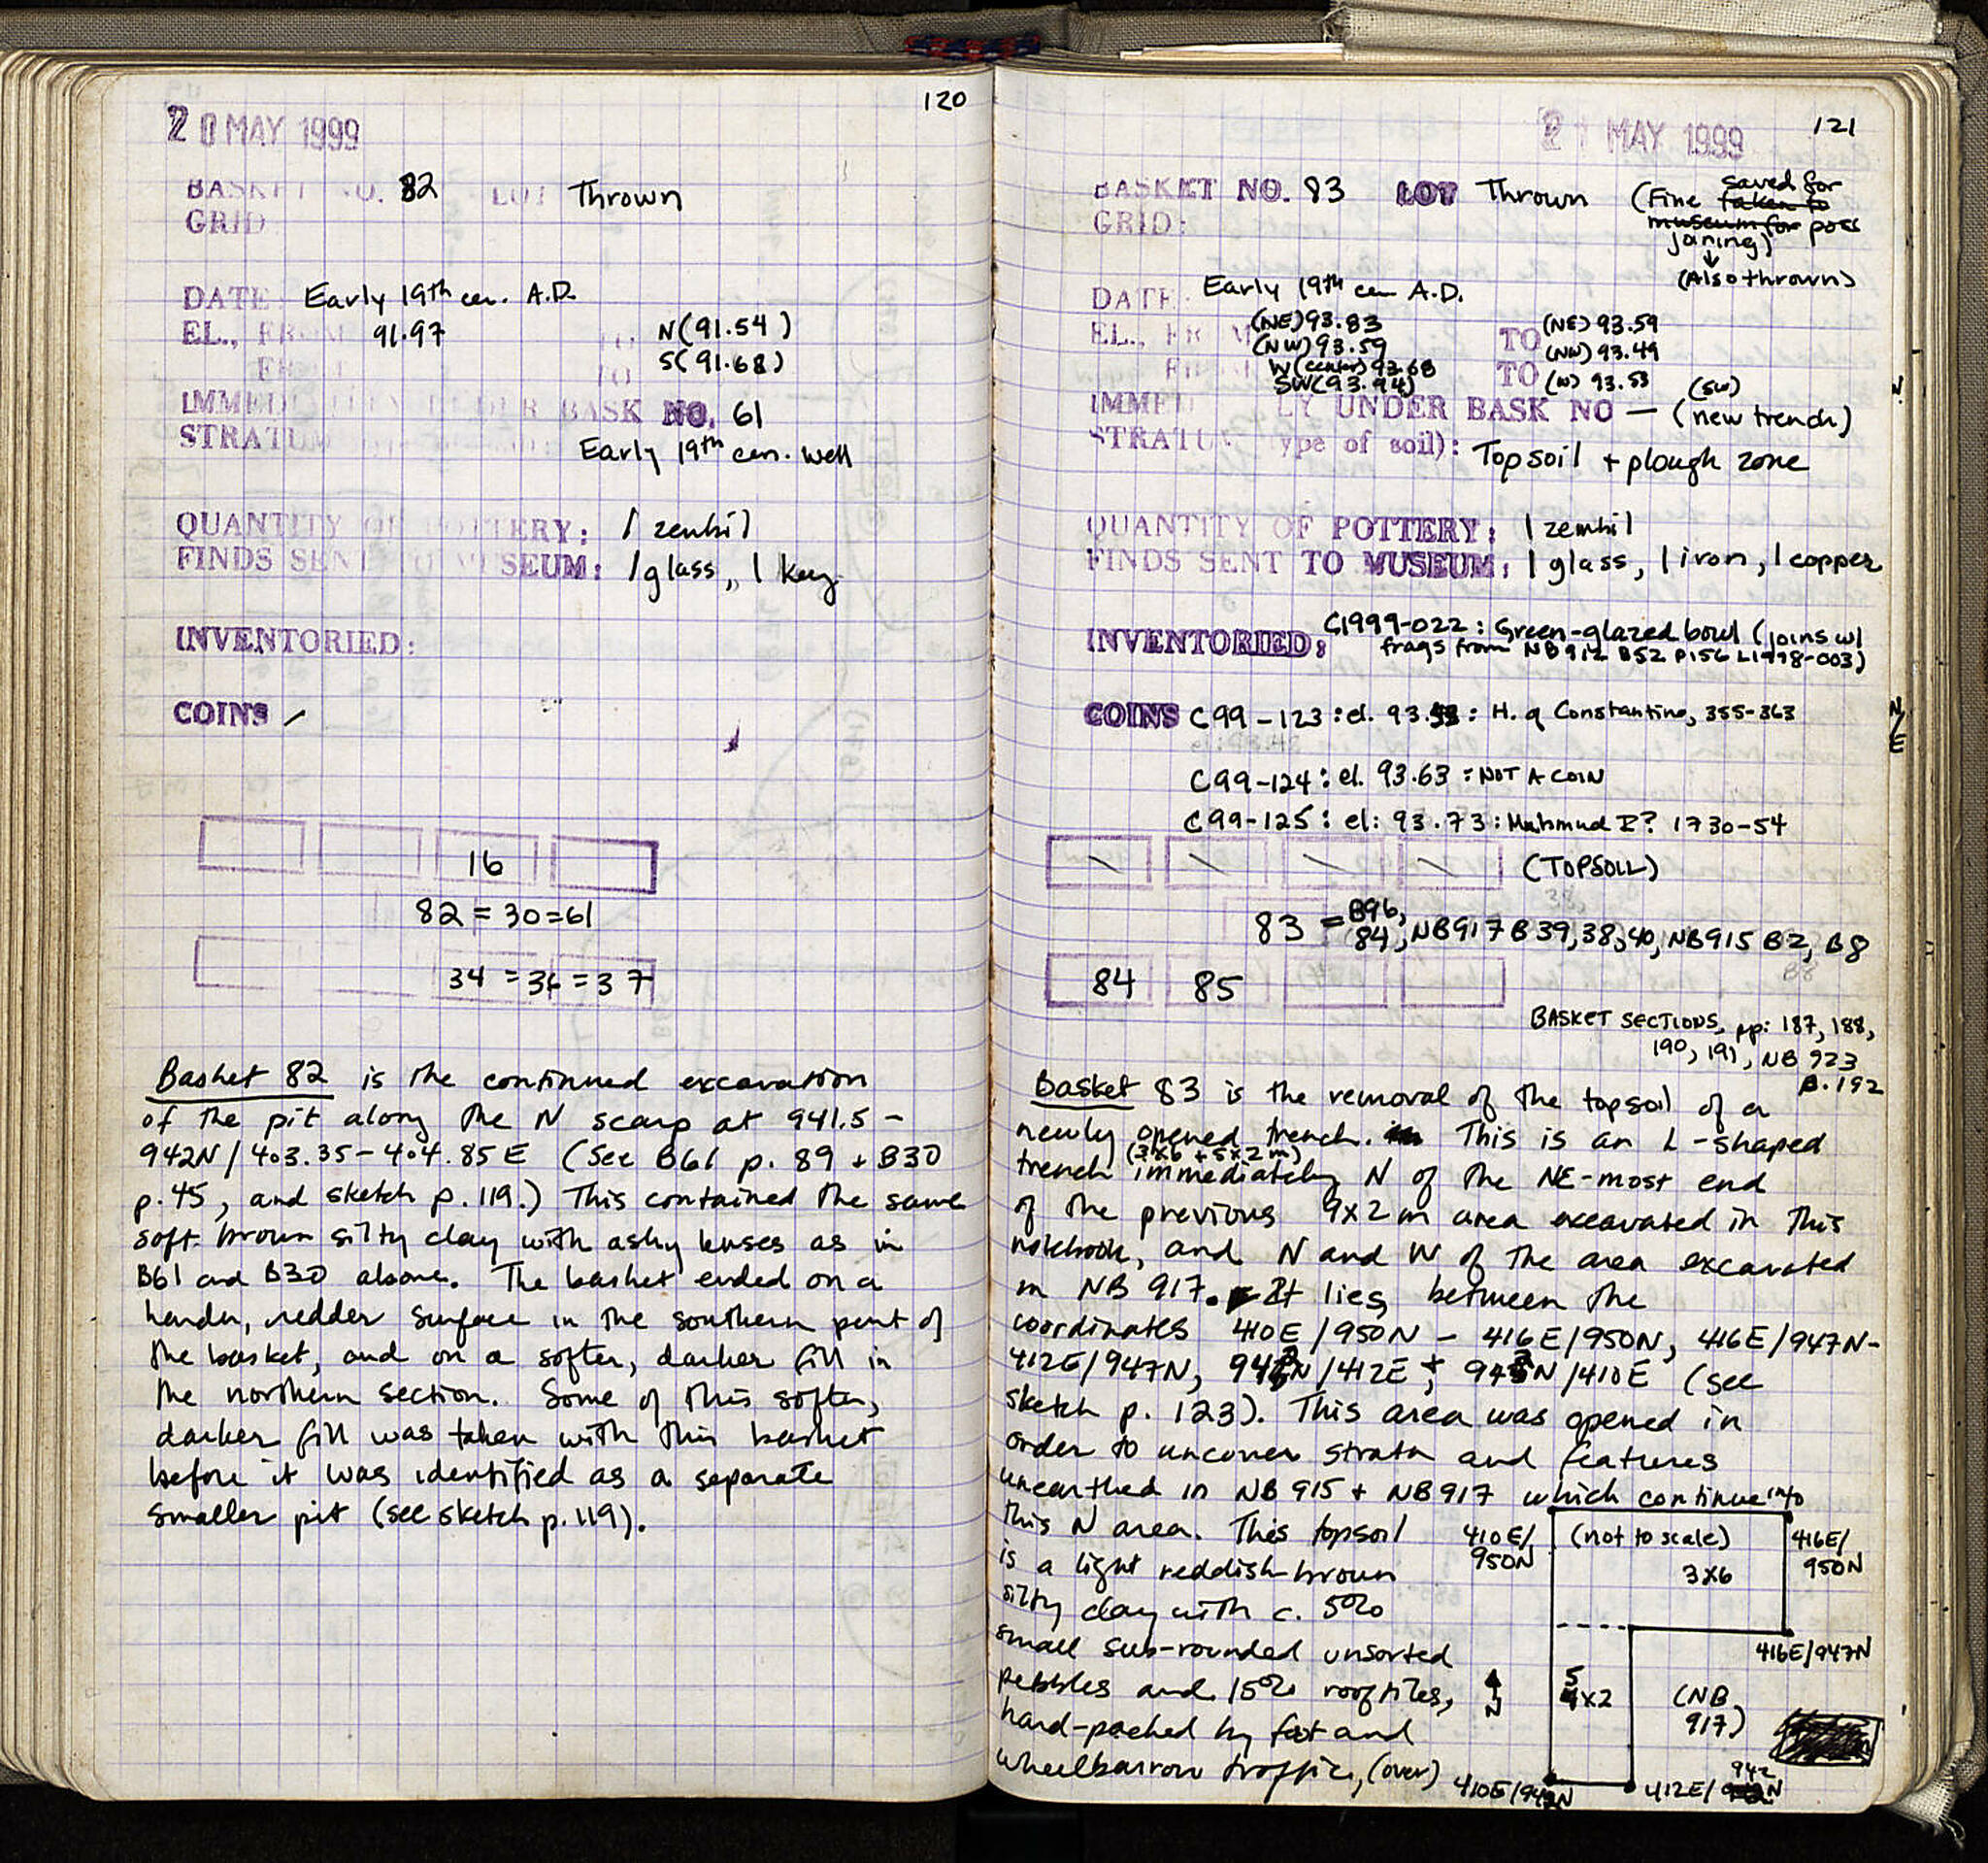 120
20 MAY 1999
BASKET NO. 82 LOT Thrown
GRID
DATE: Early 19th cen. A.D.
EL., FROM 91.97 TO N(91.54)
FROM TO S(91.68)
IMMEDIATELY UNDER BASK NO. 61
STRATUM
Early 19th cen. well
QUANTITY OF POTTERY: 1 zembil
FINDS SENT TO MUSEUM: 1 glass, 1 key
INVENTORIED:
COINS –
16
82 = 30 = 61
34 = 36 = 37
Basket 82 is the continued excavation
of the pit along the N scarp at 941.5 –
942N / 403.35 – 404.85 E (See B61 p. 89 + B30
p. 45, and sketch p. 119.) This contained the same
soft brown silty clay with ashy lenses as in
B61 and B30 above. The basket ended on a
harder, redder surface in the southern part of
the basket, and on a softer, darker fill in
the northern section. Some of this softer,
darker fill was taken with this basket
before it was identified as a separate
smaller pit (see sketch p. 119).
121
21 MAY 1999
BASKET NO. 83 LOT Thrown (Fine taken to saved for
museum for poss
joining)
↓
(Also thrown)
GRID:
DATE: Early 19th cen A.D.
EL., FROM (NE) 93.83 TO (NE) 93.59
(NW) 93.59 (NW) 93.49
FROM W (center) 93.68 TO (W) 93.53
SW (93.94) (SW)
IMMEDIATELY UNDER BASK NO — (new trench)
STRATUM (type of soil): Topsoil + plough zone
QUANTITY OF POTTERY: 1 zembil
FINDS SENT TO MUSEUM: 1 glass, 1 iron, 1 copper
INVENTORIED: C1999-022: Green-glazed bowl (joins w/
frags from NB912 B52 P156 L1998-003)
COINS C99-123: el. 93.53: H. of Constantine, 355-363
C99-124: el. 93.63: NOT A COIN
C99-125: el: 93.73: Mahmud I? 1730-54
(TOPSOIL)
83 = B96, 84, NB917 B39, 38, 40, NB915 B2, B8
B8
84 85
BASKET SECTIONS, pp: 187, 188,
190, 191, NB 923
P. 192
Basket 83 is the removal of the topsoil of a
newly opened trench. This is an L-shaped
trench (3x6 + 5x2 m) immediately N of the NE-most end
of the previous 9x2 m area excavated in this
notebook, and N and W of the area excavated
in NB 917. It lies between the
coordinates 410E/950N – 416E/950N, 416E/947N –
412E/947N, 942N/412E + 942N/410E (see
sketch p. 123). This area was opened in
order to uncover strata and features
unearthed in NB 915 + NB 917 which continue into
this N area. This topsoil
is a light reddish brown
silty clay with c. 5%
small sub-rounded unsorted
pebbles and 15% rooftiles,
hard-packed by foot and
wheelbarrow traffic, (over)
410E/
950N
(not to scale)
416E/
950N
3x6
416E/947N
5x2
(NB
917)
N
410E/942N
412E/942N
N.
N/
E